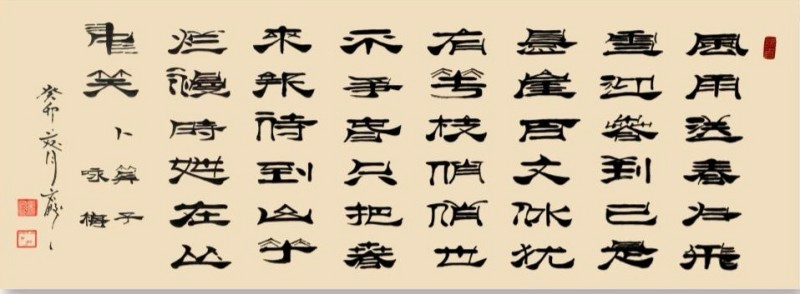 風雨送春归飛
雪迎萅到已是
悬崖百丈冰犹
有花枝俏俏也
不争旾只把春
來報待到山花
烂漫時她在丛
中笑
卜算子
咏梅
癸卯